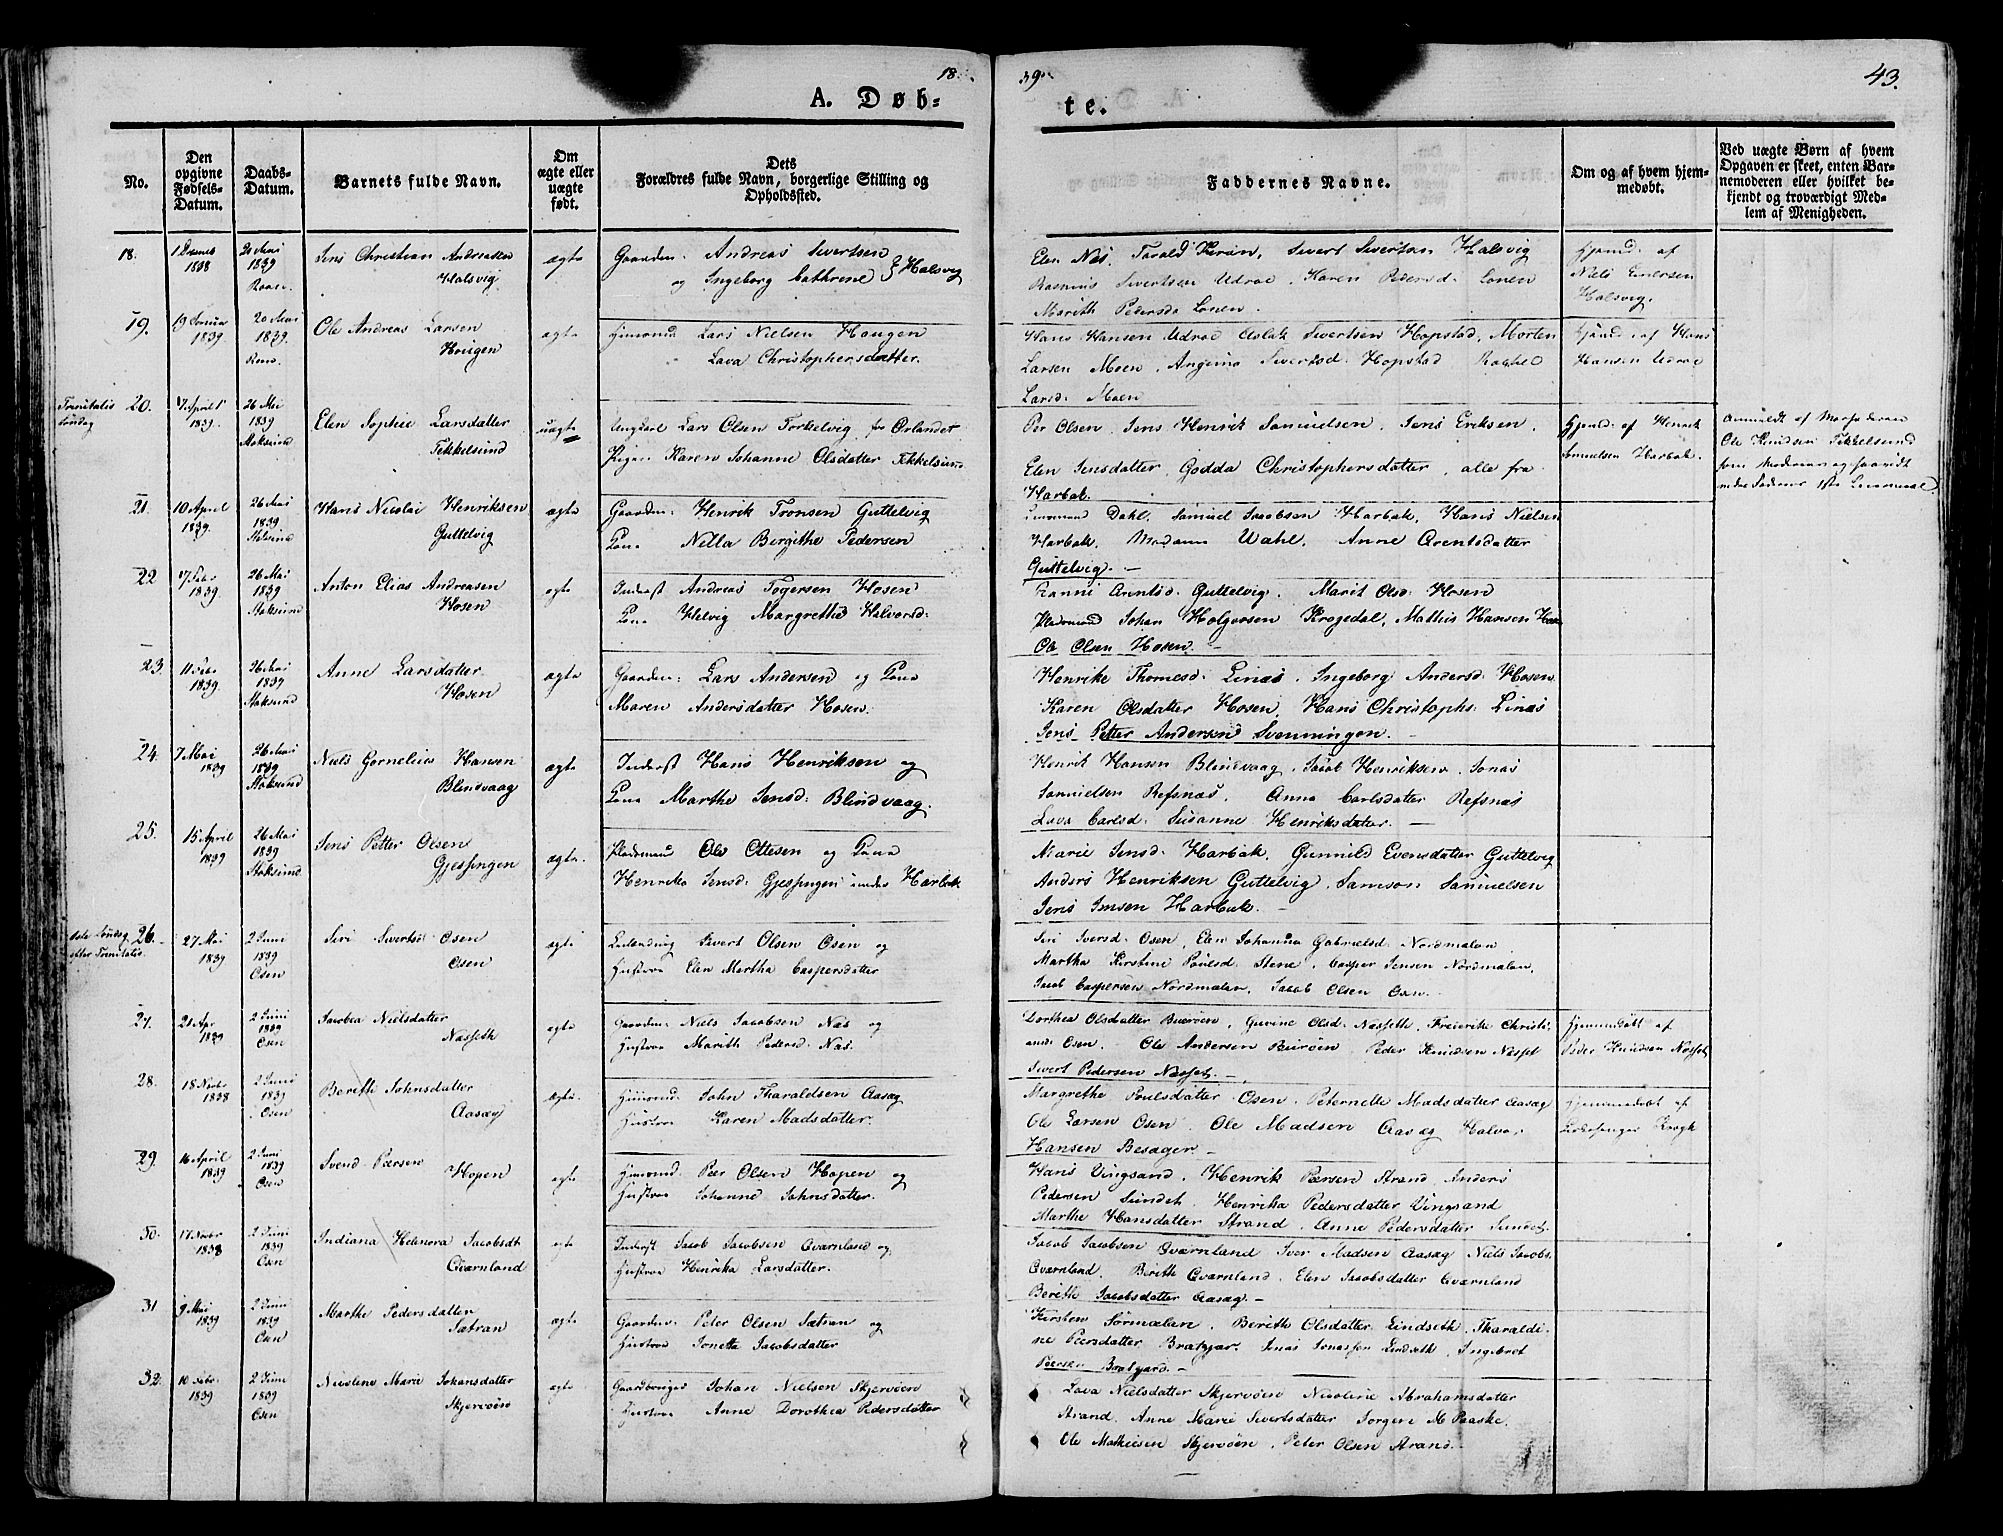 18
39
43.
A. Døb-
te.
No.
Den opgivne Fødsels-Datum.
Daabs-Datum.
Barnets fulde Navn.
Om ægte eller uægte født.
Dets Forældres fulde Navn, borgerlige Stilling og Opholdssted.
Faddernes Navne.
Om og af hvem hjemmedøbt.
Ved uægte Børn af hvem Opgaven er skeet, enten Barnemoderen eller hvilket bekjendt og troværdigt Medlem af Menigheden.
18. 1838 1839 Jens Christian Andreassen ægte Gaardm: Andreas Sivertsen
Halsvig og Ingeborg Cathrine Halsvig
Elen Næs, Sivert Sivertsen Halsvig Hjemd: af
Rasmus Sivertsen Udroe, Karen Pedersd: Lonen Niels
Marith Pedersd: Lonen. Halsvig.
19. 1839. 20 Mai 1839. Ole Andreas Larsen ægte Lars Nielsen Haugen
Haugen Lava Christophersdatter.
Hans Hansen Udroe Aslak Sivertsen Hopstad, Morten Hjemd: af Hans
Larsen Moen, Sivertsd: Hopstad Hansen Udroe
Larsd: Moen
Trinitatis Søndag
20. 7 April 1839. 26 Mai 1839 Stoksund Elen Sophie Larsdatter uægte Ungkarl Lars Olsen Torkelvig, for Ørlandet
Tekkelsund Pigen Karen Johanne Olsdatter Tekkelsund
Per Olsen, Jens Henrik Samuelsen, Jens Eriksen, Hjemd: af Henrik
Elen Jensdatter, Godda Christophersdatter, alle fra Samuelsen Harbak.
Harbak.
Anmeldt af Morfaderen
Ole Knudsen Tekkelsund
21. 10 April 1839. 26 Mai 1839 Stoksund Hans Nicolai Henriksen ægte Gaardm: Henrik Tronsen Guttelvig
Guttelvig Kona Nella Birgithe Pedersen
Dahl, Samuel Jacobsen Harbak, Hans Nielsen
Harbak, Madame Wahl, Anne Arentsdatter
Guttelvig. —
22 7 Febr 1839. 26 Mai 1839 Stoksund Anton Elias Andreasen ægte Inderst Andreas Togersen Hosen
Hosen Kona Helvig Margrethe Halvorsd:
Arntsd: Guttelvig, Marit Olsd: Hosen
Pladsmand Johan Holgersen Krogedal, Mathis Hansen
Ole Olsen Hosen. —
23. 11 Febr 1839. 26 Mai 1839 Stoksund Anne Larsdatter ægte Gaardm: Lars Andersen og Kona
Hosen Maren Andersdatter Hosen.
Henrike Thomesd: Linæs, Ingeborg Andersd: Hosen
Karen Olsdatter Hosen, Hans Christophs: Linæs
Jens Petter Andersen Svenningen. —
24. 7 Mai 1839 26 Mai 1839 Stoksund Niels Gornelius Hansen ægte Inderst Hans Henriksen og
Blindvaag Kona Marthe Jensd: Blindvaag.
Henrik Hansen Blindvaag, Jacob Henriksen, Jonas
Samuelsen Refsnæs, Anna Carlsdatter Refsnæs
Lava Carlsd: Susanne Henriksdatter. —
25. 15 April 1839 26 Mai 1839 Stoksund Jens Petter Olsen ægte. Pladsmand Ole Ottesen og Kona
Gjessingen Henrika Jensd: Gjessingen under Harbak
Marie Jensd: Harbak, Gunnild Evensdatter Guttelvig
Anders Henriksen Guttelvig, Samson Samuelsen
Jens Jensen Harbak. —
Søndag efter Trinitatis.
26. 27 Mai 1839 2 Juni 1839 Osen Siri Sivertsd: Osen ægte Sivert Olsen Osen og
Osen Hustroe Elen Martha Caspersdatter
Siri Iversd: Osen, Elen Johanna Gabrielsd: Nordmelan
Martha Kirstine Poulsd: Stene, Casper Jensen Nordmelan,
Jacob Caspersen Nordmelan, Jacob Olsen Osen.
27. 21 Apr 1839 2 Juni 1839 Osen Jacobea Nielsdatter ægte Gaardm: Niels Jacobsen Næs og
Næsseth Hustroe Marith Pedersd: Næs.
Dorthea Olsdatter Buerøen, Olsd: Næsseth, Frederike Christi-
ansd: Osen, Ole Andersen Buerøen Peder Knudsen Næsset
Sivert Pedersen Næsset. —
Hjemmedøbt af
Peder Knudsen Næsset
28. 18 Novbr 1838 2 Juni 1839 Osen Berith Johnsdatter ægte John Tharaldsen Aasæg
Aasæg Hustroe Karen Madsdatter.
Margrethe Poulsdatter Osen, Peternelle Madsdatter Aasæg
Ole Larsen Osen. Ole Madsen Aasæg Halvor
Hansen Besager. —
Hjemmedøbt af
Krogh
29. 16 April 1839 2 Juni 1839 Osen Svend Peersen ægte Peer Olsen Hopen og
Hopen Hustroe Johanne Johnsdatter.
Hans Vingsand, Henrik Peersen Strand, Anders
Pedersen Sundet, Henrika Pedersdatter Vingsand
Marthe Hansdatter Strand, Anne Pedersdatter Sundet
30. 17 Novbr 1838 2 Juni 1839 Osen Indiana Helenora Jacobsdt ægte Inderst Jacob Jacobsen Qvarnland og
Qvarnland Hustroe Henrika Larsdatter.
Jacob Jacobsen Qværnland Iver Madsen Aasæg Niels Jacobs.
Qværnland. Berith Qværnland, Elen Jacobsdatter Qværnland
Berith Jacobsdatter Aasæg. —
31 9 Mai 1839 2 Juni 1839 Osen Marthe Pedersdatter ægte Gaardm: Peter Olsen Sætran og
Sætran Hustroe Jonetta Jacobsdatter
Kirsten Sørmælen, Berith Olsdatter Lindseth, Tharaldi-
ne Peersdatter Brætgjær, Jonas Jonassen Lindseth, Ingebret
Peersen Brætgjærd. —
32. 10 Febr. 1839 2 Juni 1839 Osen Nicoline Marie Johansdatter ægte Johan Nielsen Skjervøen
Skjervøen Hustroe Anne Dorothea Pedersdatter
Lava Nielsdatter Skjervøen Nicoline Abrahamsdatter
Strand, Anne Marie Sivertsdatter Jørgine M Paaske,
Ole Mathiesen Skjervøen, Peter Olsen Strand. —